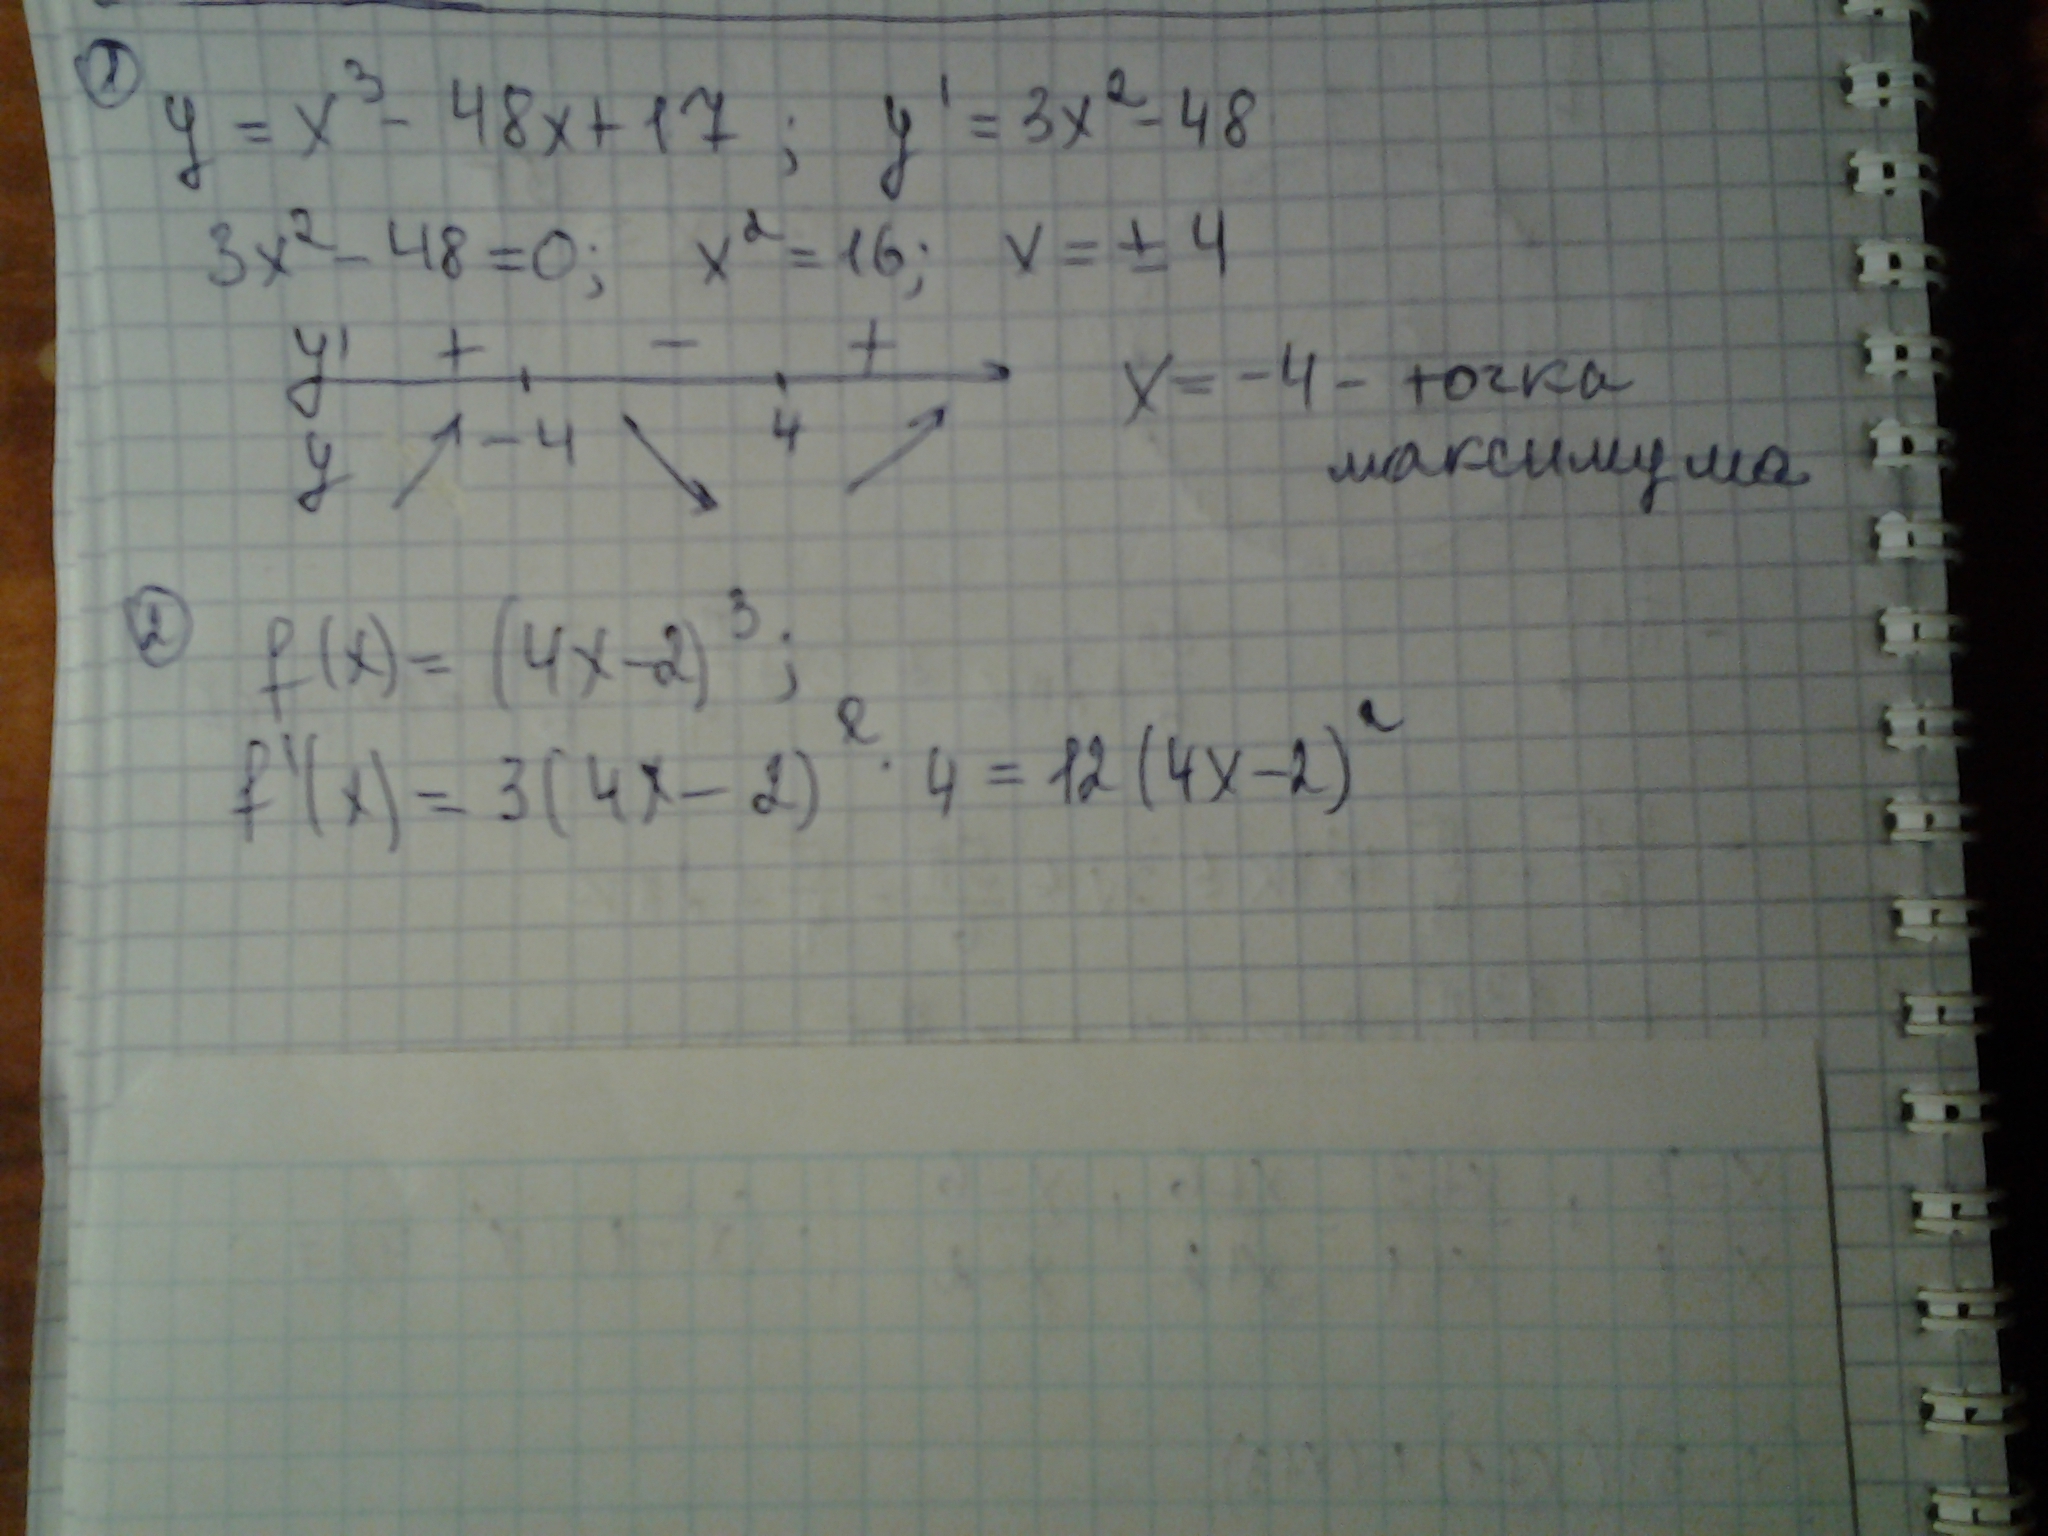 ① y = x³ - 48x + 17 ; y' = 3x² - 48
3x² - 48 = 0; x² = 16; x = ± 4
y' + - +
-4 4
y
x = -4 - точка
максимума
② f(x) = (4x - 2)³;
f'(x) = 3(4x - 2)² · 4 = 12(4x - 2)²